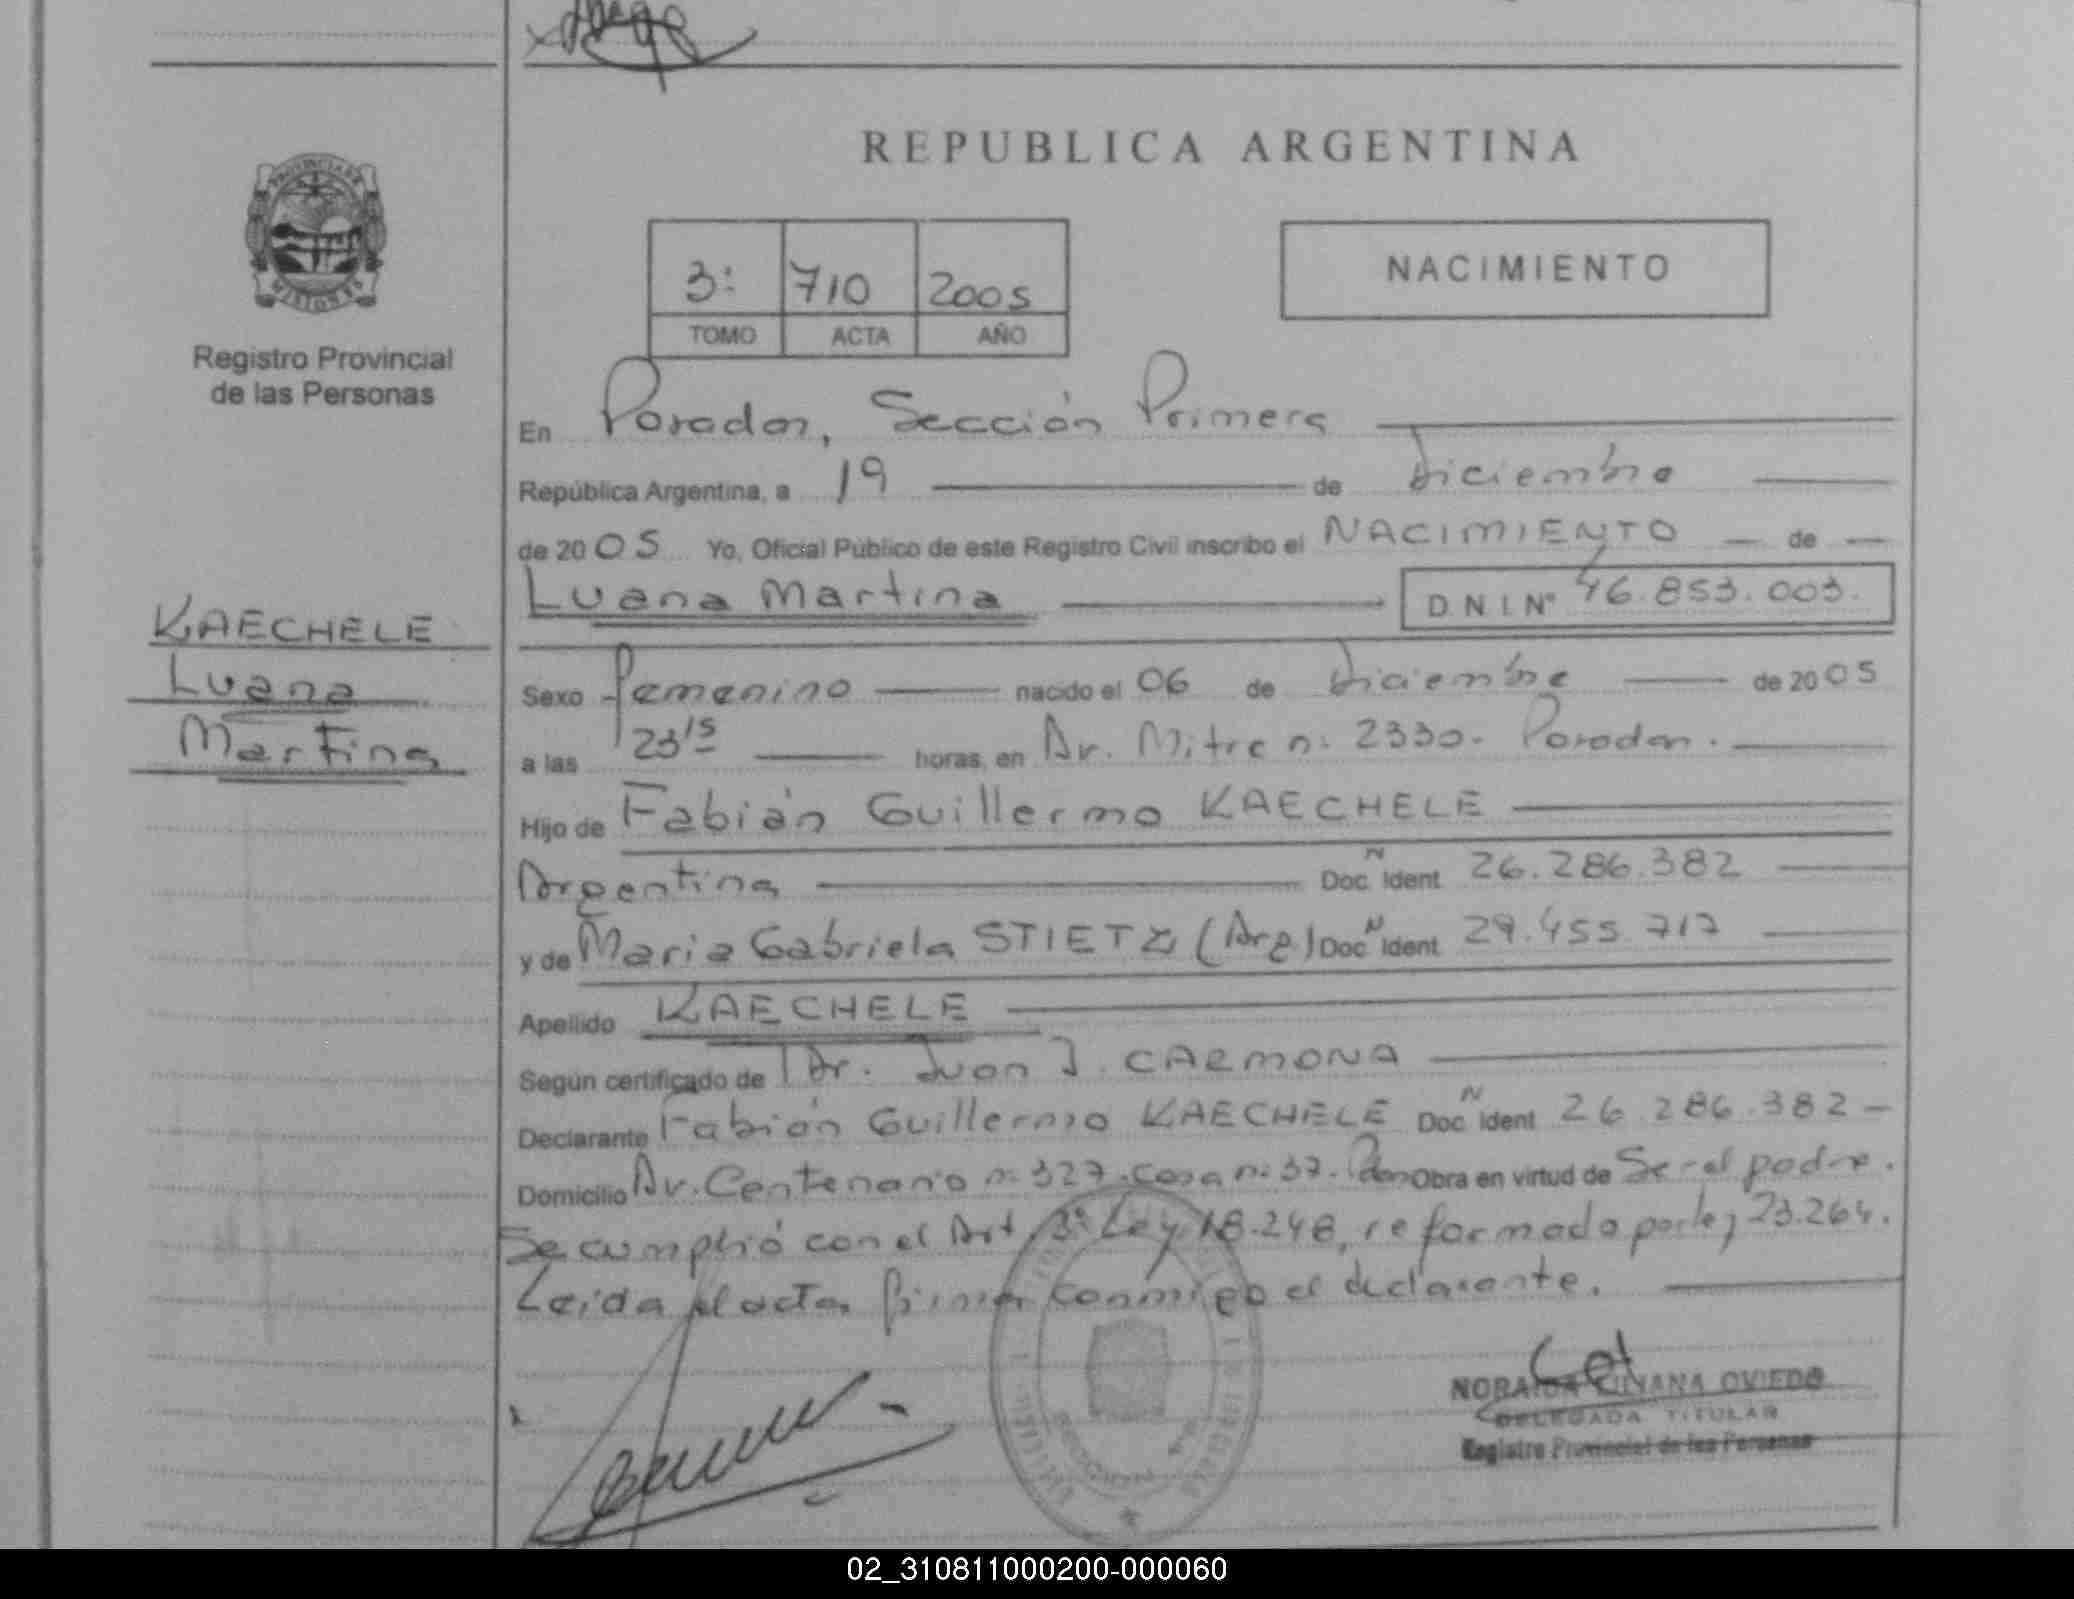 REPUBLICA ARGENTINA
PROVINCIA DE
MISIONES
Registro Provincial
de las Personas
3: 710 2005
TOMO ACTA AÑO
NACIMIENTO
En Posadas, Sección Primera
República Argentina, a 19 de Diciembre
de 2005 Yo, Oficial Público de este Registro Civil inscribo el NACIMIENTO de
Luana Martina D N I Nº 46.853.003.
KAECHELE
Luana
Martina
Sexo Femenino nacido el 06 de Diciembre de 2005
a las 23 15 horas, en Av. Mitre n: 2330. Posadas.
Hijo de Fabián Guillermo KAECHELE
Argentina Doc. N Ident. 26.286.382
y de Maria Gabriela STIETZ (Arg) Doc. N Ident. 29.455.717
Apellido KAECHELE
Según certificado de Dr. Juan J. CARMONA
Declarante Fabián Guillermo KAECHELE Doc. N Ident. 26.286.382
Domicilio Av. Centenario n: 327. Casa n: 37. Pdas Obra en virtud de Ser el padre.
Se cumplió con el Art 3º Ley 18.248, reformado por ley 23.264.
Leida el acta, firma conmigo el declarante.
NORAIDA LILIANA OVIEDO
DELEGADA TITULAR
Registro Provincial de las Personas
02_310811000200-000060